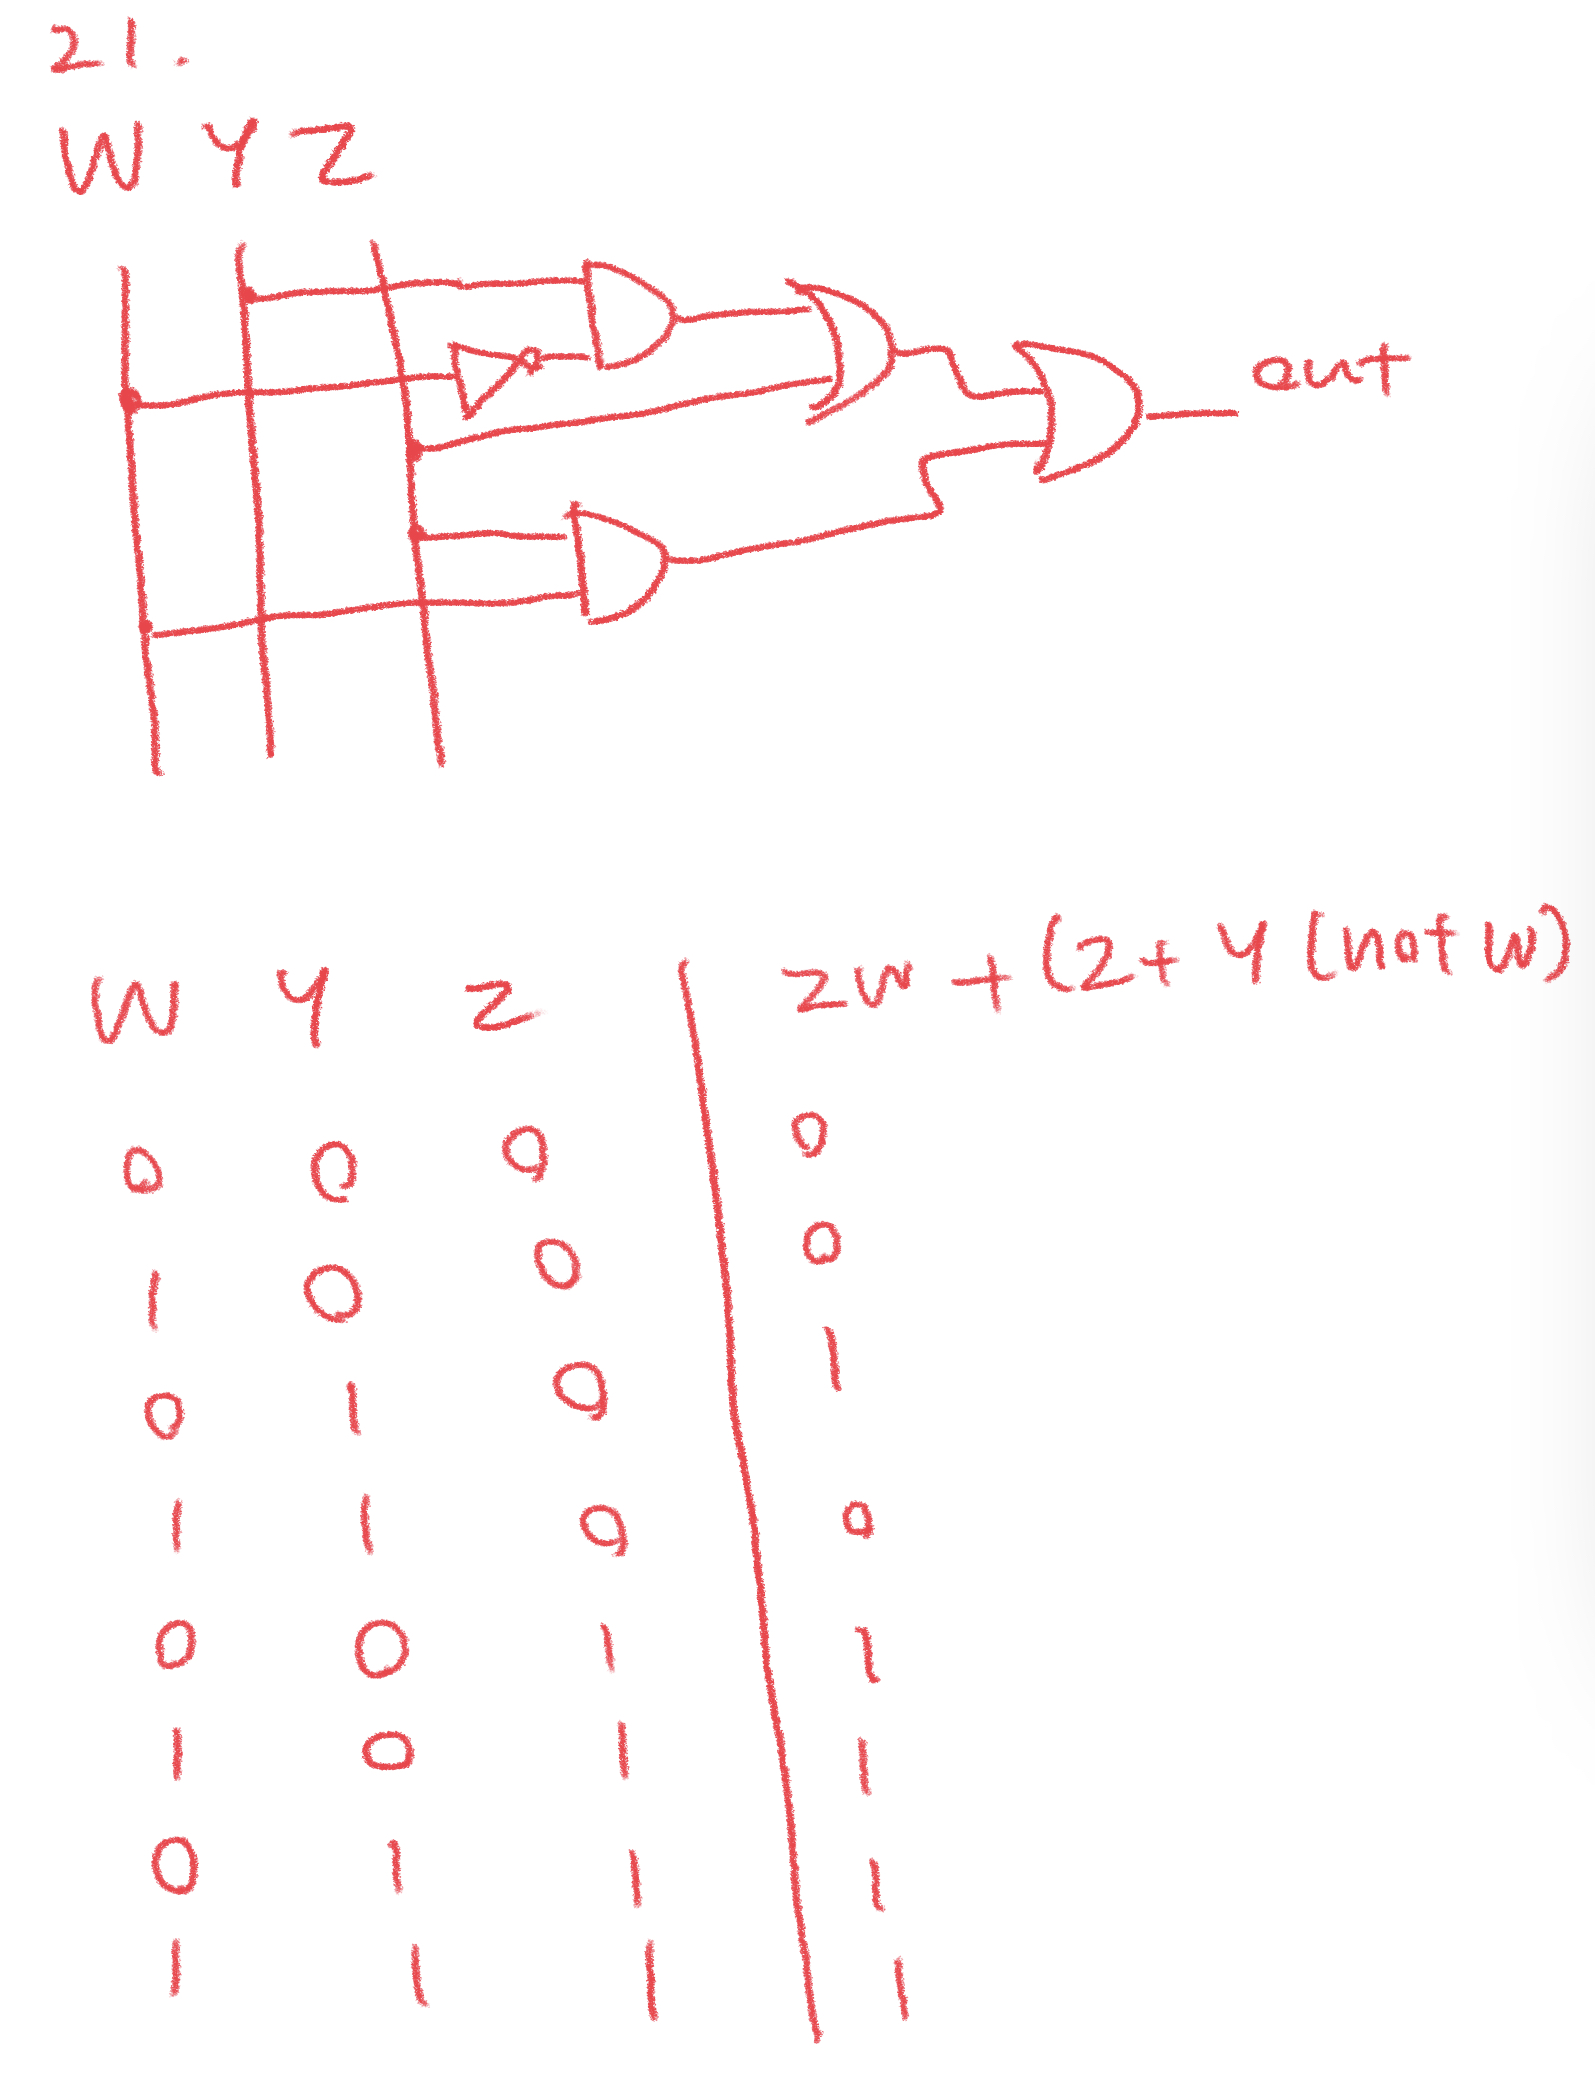 21.
W Y Z
out
W Y Z zw + (z + Y (not w)
0 0 0 0
1 0 0 0
0 1 0 1
1 1 0 0
0 0 1 1
1 0 1 1
0 1 1 1
1 1 1 1